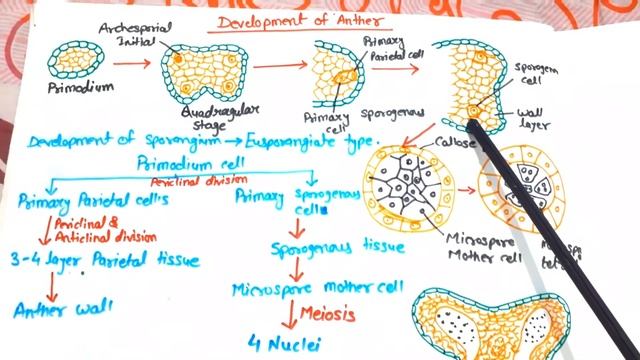 Development of Anther
Archesporial
Initial
Primodium
Quadragular
stage
Primary
Parietal cell
Primary sporogenous
cell
sporogen
cell
wall
layer
Development of sporangium → Eusporangiate type.
Primodium cell
Periclinal division
Primary Parietal cells
Periclinal &
Anticlinal division
3-4 layer Parietal tissue
Anther wall
Primary sporogenous
cells
Sporogenous tissue
Microspore mother cell
Meiosis
4 Nuclei
Callose
Microspore
Mother cell